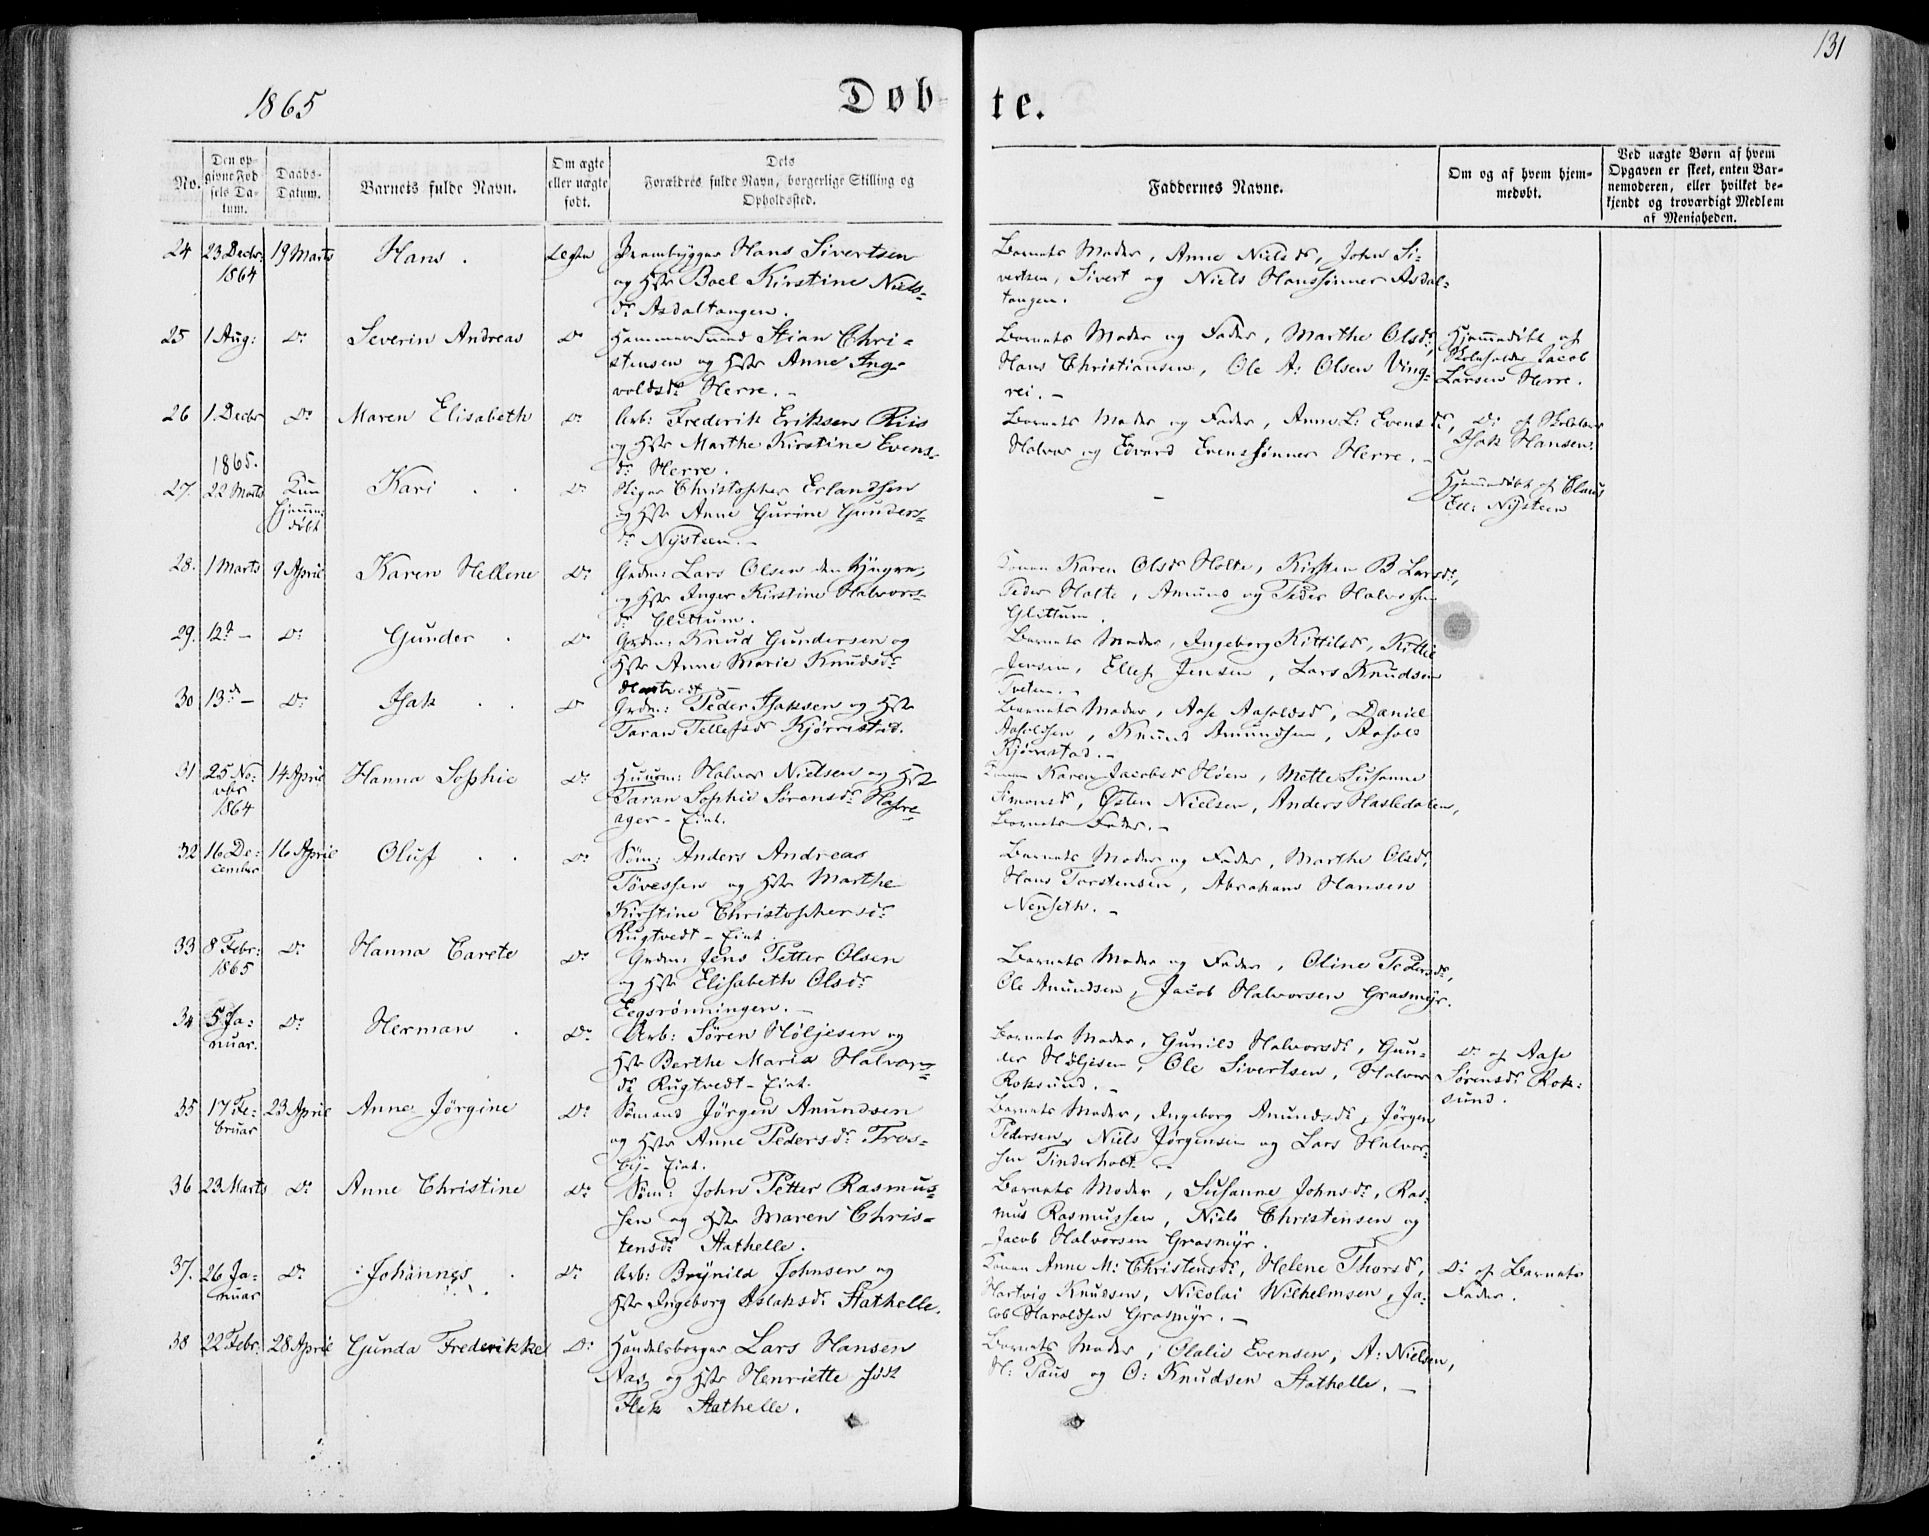 131
1865
Døbte.
No.
Den opgivne Fødsels Datum.
Daabs-Datum.
Barnets fulde Navn.
Om ægte eller uægte født.
Dets Forældres fulde Navn, borgerlige Stilling og Opholdssted.
Faddernes Navne.
Om og af hvem hjemmedøbt.
Ved uægte Børn af hvem Opgaven er skeet, enten Barnemoderen, eller hvilket bekjendt og troværdigt Medlem af Menigheden.
24 23 Decbr. 1864 19 Marts Hans. Ægte Prambygger Hans Sivertsen
og Hstr Boel Kirstine Niels-
dr Asdaltangen.
Barnets Moder, Anne Nielsdr, John Si-
vertsen, Sivert og Niels Hanssønner Asdal-
tangen.
25 1 Aug: Do Severin Andreas Do Hammersmed Stian Chri-
stensen og Hstr Anne Ing-
voldsdr Herre. -
Barnets Moder og Fader, Marthe Olsdr,
Hans Christiansen, Ole A: Olsen Ving-
rei. -
Hjemmedøbt af
Skoleholder Jacob
Larsen Herre.
26 1. Decbr Do Maren Elisabeth Do Arb: Frederik Eriksen Riis
og Hstr Marthe Kirstine Evens-
dr Herre.
Barnets Moder og Fader, Anne L: Evensdr,
Halvor og Edvard Evenssønner Herre. -
Do af
Isak Hansen.
1865.
27. 22 Marts Kun
hjemme-
døbt Kari . . Do Christopher Erlandsen
og Hstr Anne Gurine Gunders-
dr Nysteen. -
-
Hjemmedøbt af Claus
Ell: Nysteen
28. 1 Marts 9 April Karen Hellene Do Grdm: Lars Olsen den Yngre,
og Hstr Inger Kirstine Halvors-
dr Glittum.
Konen Karen Olsdr Holte, Kirsten B Larsdr,
Peder Holte, Amund og Peder Halvorsen
Glittum.
29. 12te - Do Gunder . Do Grdm: Knud Gundersen og
Hstr Anne Marie Knudsdr
Barnets Moder, Ingeborg Kittilsdr, Kittil
Jensen, Ellef Jensen, Lars Knudsen
Tveten. -
30 13de - Do Isak . . Do Grdm: Peder Isaksen og Hstr
Taran Tellefsdr Kjørrestad.
Barnets Moder, Aase Aasoldsdr, Daniel
Aasoldsen, Knud Amundsen, Aasold
Kjørrestad. -
31 25 No-
vbr
1864 14 April Hanna Sophie Do Husm: Halvor Nielsen og Hstr
Taran Sophie Sørensdr
ager - Eint.
Konen Karen Jacobsdr Høen, Mette Susanne
Simonsdr, Østen Nielsen, Anders Hasledalen,
Barnets Fader. -
32 16 De-
cember 16 April Oluf . . Do Søm: Anders Andreas
Tovessen og Hstr Marthe
Kirstine Christophersdr
Rugtvedt - Eint.
Barnets Moder og Fader, Marthe Olsdr,
Hans Torstensen, Abraham Hansen
Nenseth. -
33 8 Febr:
1865 Do Hanna Carete Do Grdm: Jens Petter Olsen
og Hstr Elisabeth Olsdr
Eegsrønningen. -
Barnets Moder og Fader, Oline Pedersdr,
Ole Amundsen, Jacob Halvorsen Grasmyr.
34 5 Ja-
nuar. Do Herman . Do Arb: Søren Høljesen og
Hstr Berthe Maria Halvors-
dr Rugtvedt - Eint.
Barnets Moder, Gunild Halvorsdr, Gun-
der Høljesen, Ole Sivertsen, Halvor
Roksund. -
Do af Aase
Sørensdr Rok-
sund.
35 17 Fe-
bruar 23 April Anne Jørgine Do Sømand Jørgen Anundsen
og Hstr Anne Pedersdr Tros-
by - Eint.
Barnets Moder, Ingeborg Anundsdr, Jørgen
Pedersen, Niels Jørgensen og Lars Halvor-
sen Tinderholt. -
36 23 Marts Do Anne Christine Do Søm: John Petter Rasmus-
sen og Hstr Maren Chris-
tensdr Stathelle.
Barnets Moder, Susanne Johnsdr, Ras-
mus Rasmussen, Niels Christensen og
Jacob Halvorsen Grasmyr.
37. 26 Ja-
nuar Do Johannes . Do Arb: Brynild Johnsen og
Hstr Ingeborg Aslaksdr Stathelle.
Konen Anne M: Christensdr, Helene Thorsdr,
Hartvig Knudsen, Nicolai Wilhelmsen, Ja-
cob Haroldsen Grasmyr. -
Do af Barnets
Fader.
38 22 Febr. 28 April Gunda Frederikke Do Handelsborger Lars Hansen
Aas og Hstr Henriette født
Flek Stathelle.
Barnets Moder, Olalie Evensen, A: Nielsen,
H: Paus og O: Knudsen Stathelle. -